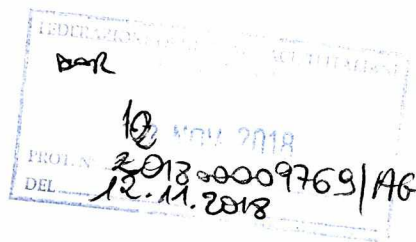 FEDERAZIONE
DAR
12 NOV 2018
PROT. N 2018-0009769/AG
DEL 12.11.2018